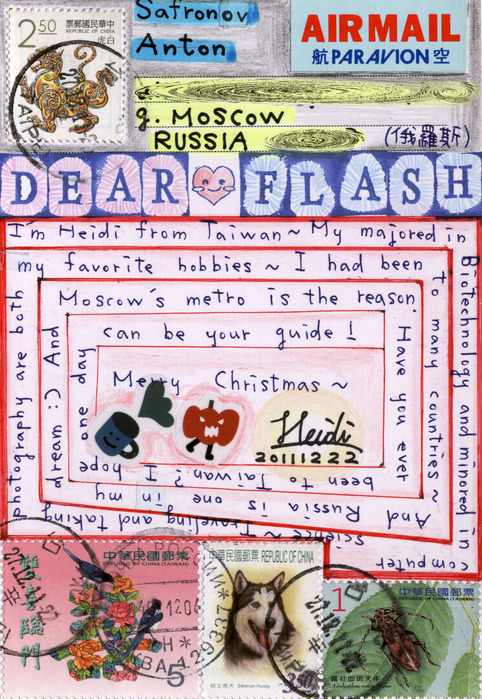 2.50
中華民國郵票
REPUBLIC OF CHINA
白虎
Safronov
Anton
AIR MAIL
航 PAR AVION 空
g. MOSCOW
RUSSIA
(俄羅斯)
DEAR FLASH
I'm Heidi from Taiwan~ My majored in
Biotechnology and minored in
computer
science~ Traveling and taking
photography are both
my favorite hobbies ~ I had been
to many countries ~
And Russia is one in my
dream :) And
Moscow's metro is the reason.
Have you ever
been to Taiwan? I hope
one day
can be your guide !
Merry Christmas ~
Heidi
20111222
中華民國郵票
REPUBLIC OF CHINA (TAIWAN)
雙喜臨門
5
中華民國郵票 REPUBLIC OF CHINA
Siberian Husky
350
中華民國郵票
REPUBLIC OF CHINA (TAIWAN)
1
霧社血斑天牛